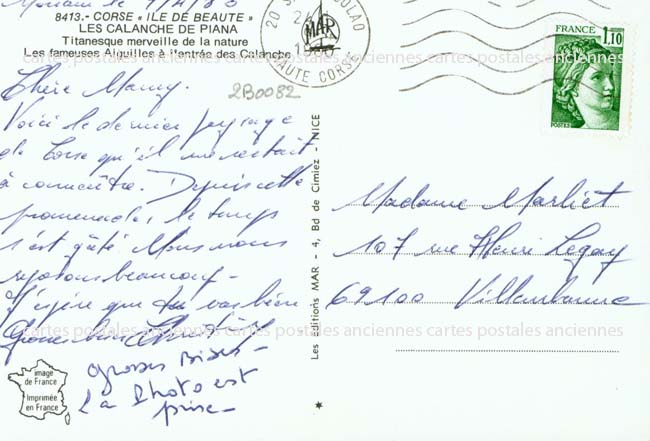 8413.- CORSE « ILE DE BEAUTE »
LES CALANCHE DE PIANA
Titanesque merveille de la nature
Les fameuses Aiguilles à l'entrée des Calanche
20 S
HAUTE CORSE
MAR
FRANCE
1,10
POSTES
2B0082
Chère Mamy.
Voici le dernier paysage
de Corse qu'il me restait
à connaître. Depuis cette
promenade, le temps
s'est gâté. Mais nous
reposons beaucoup -
J'espère que tu vas bien
Grosses bises
grosses Bises -
La Photo est
prise -
Madame Marliet
107 rue Henri Legay
69100 Villeurbanne
Les éditions MAR - 4, Bd de Cimiez - NICE
image
de France
Imprimée
en France
cartes postales anciennes cartes postales anciennes cartes postales anciennes
cartes postales anciennes cartes postales anciennes cartes postales anciennes